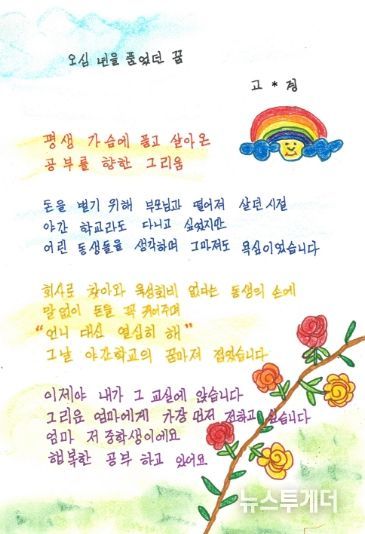 오십 년을 품었던 꿈
고 * 정
평생 가슴에 품고 살아온
공부를 향한 그리움
돈을 벌기 위해 부모님과 떨어져 살던 시절
야간 학교라도 다니고 싶었지만
어린 동생들을 생각하며 그마저도 욕심이었습니다
회사로 찾아와 육성회비 없다는 동생의 손에
말없이 돈을 꼭 쥐어주며
"언니 대신 열심히 해"
그날 야간학교의 꿈마저 접었습니다
이제야 내가 그 교실에 앉습니다
그리운 엄마에게 가장 먼저 전하고 싶습니다
엄마 저 중학생이에요
행복한 공부 하고 있어요
뉴스투게더